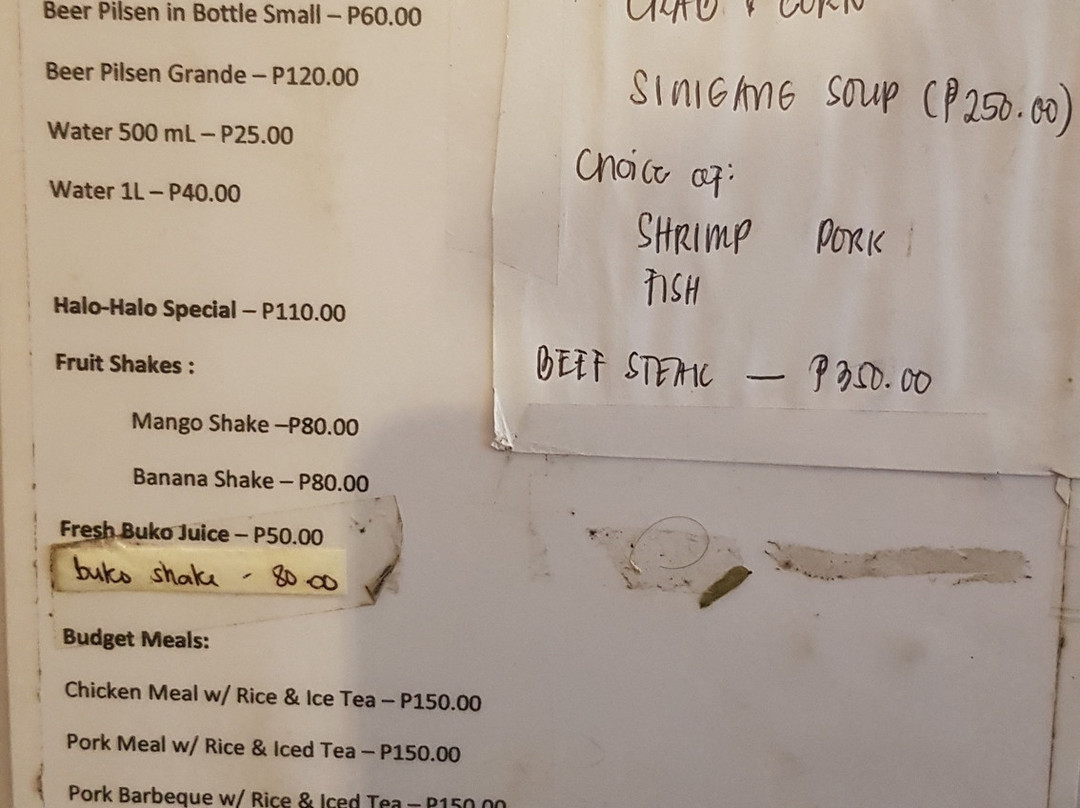 Beer Pilsen in Bottle Small – P60.00
Beer Pilsen Grande – P120.00
Water 500 mL – P25.00
Water 1L – P40.00
Halo-Halo Special – P110.00
Fruit Shakes :
Mango Shake –P80.00
Banana Shake – P80.00
Fresh Buko Juice – P50.00
buko shake - 80.00
Budget Meals:
Chicken Meal w/ Rice & Ice Tea – P150.00
Pork Meal w/ Rice & Iced Tea – P150.00
Pork Barbeque w/ Rice & Iced Tea – P150.00
CRAB & CORN
SINIGANG SOUP (₱250.00)
Choice of:
SHRIMP PORK
FISH
BEEF STEAK — ₱350.00